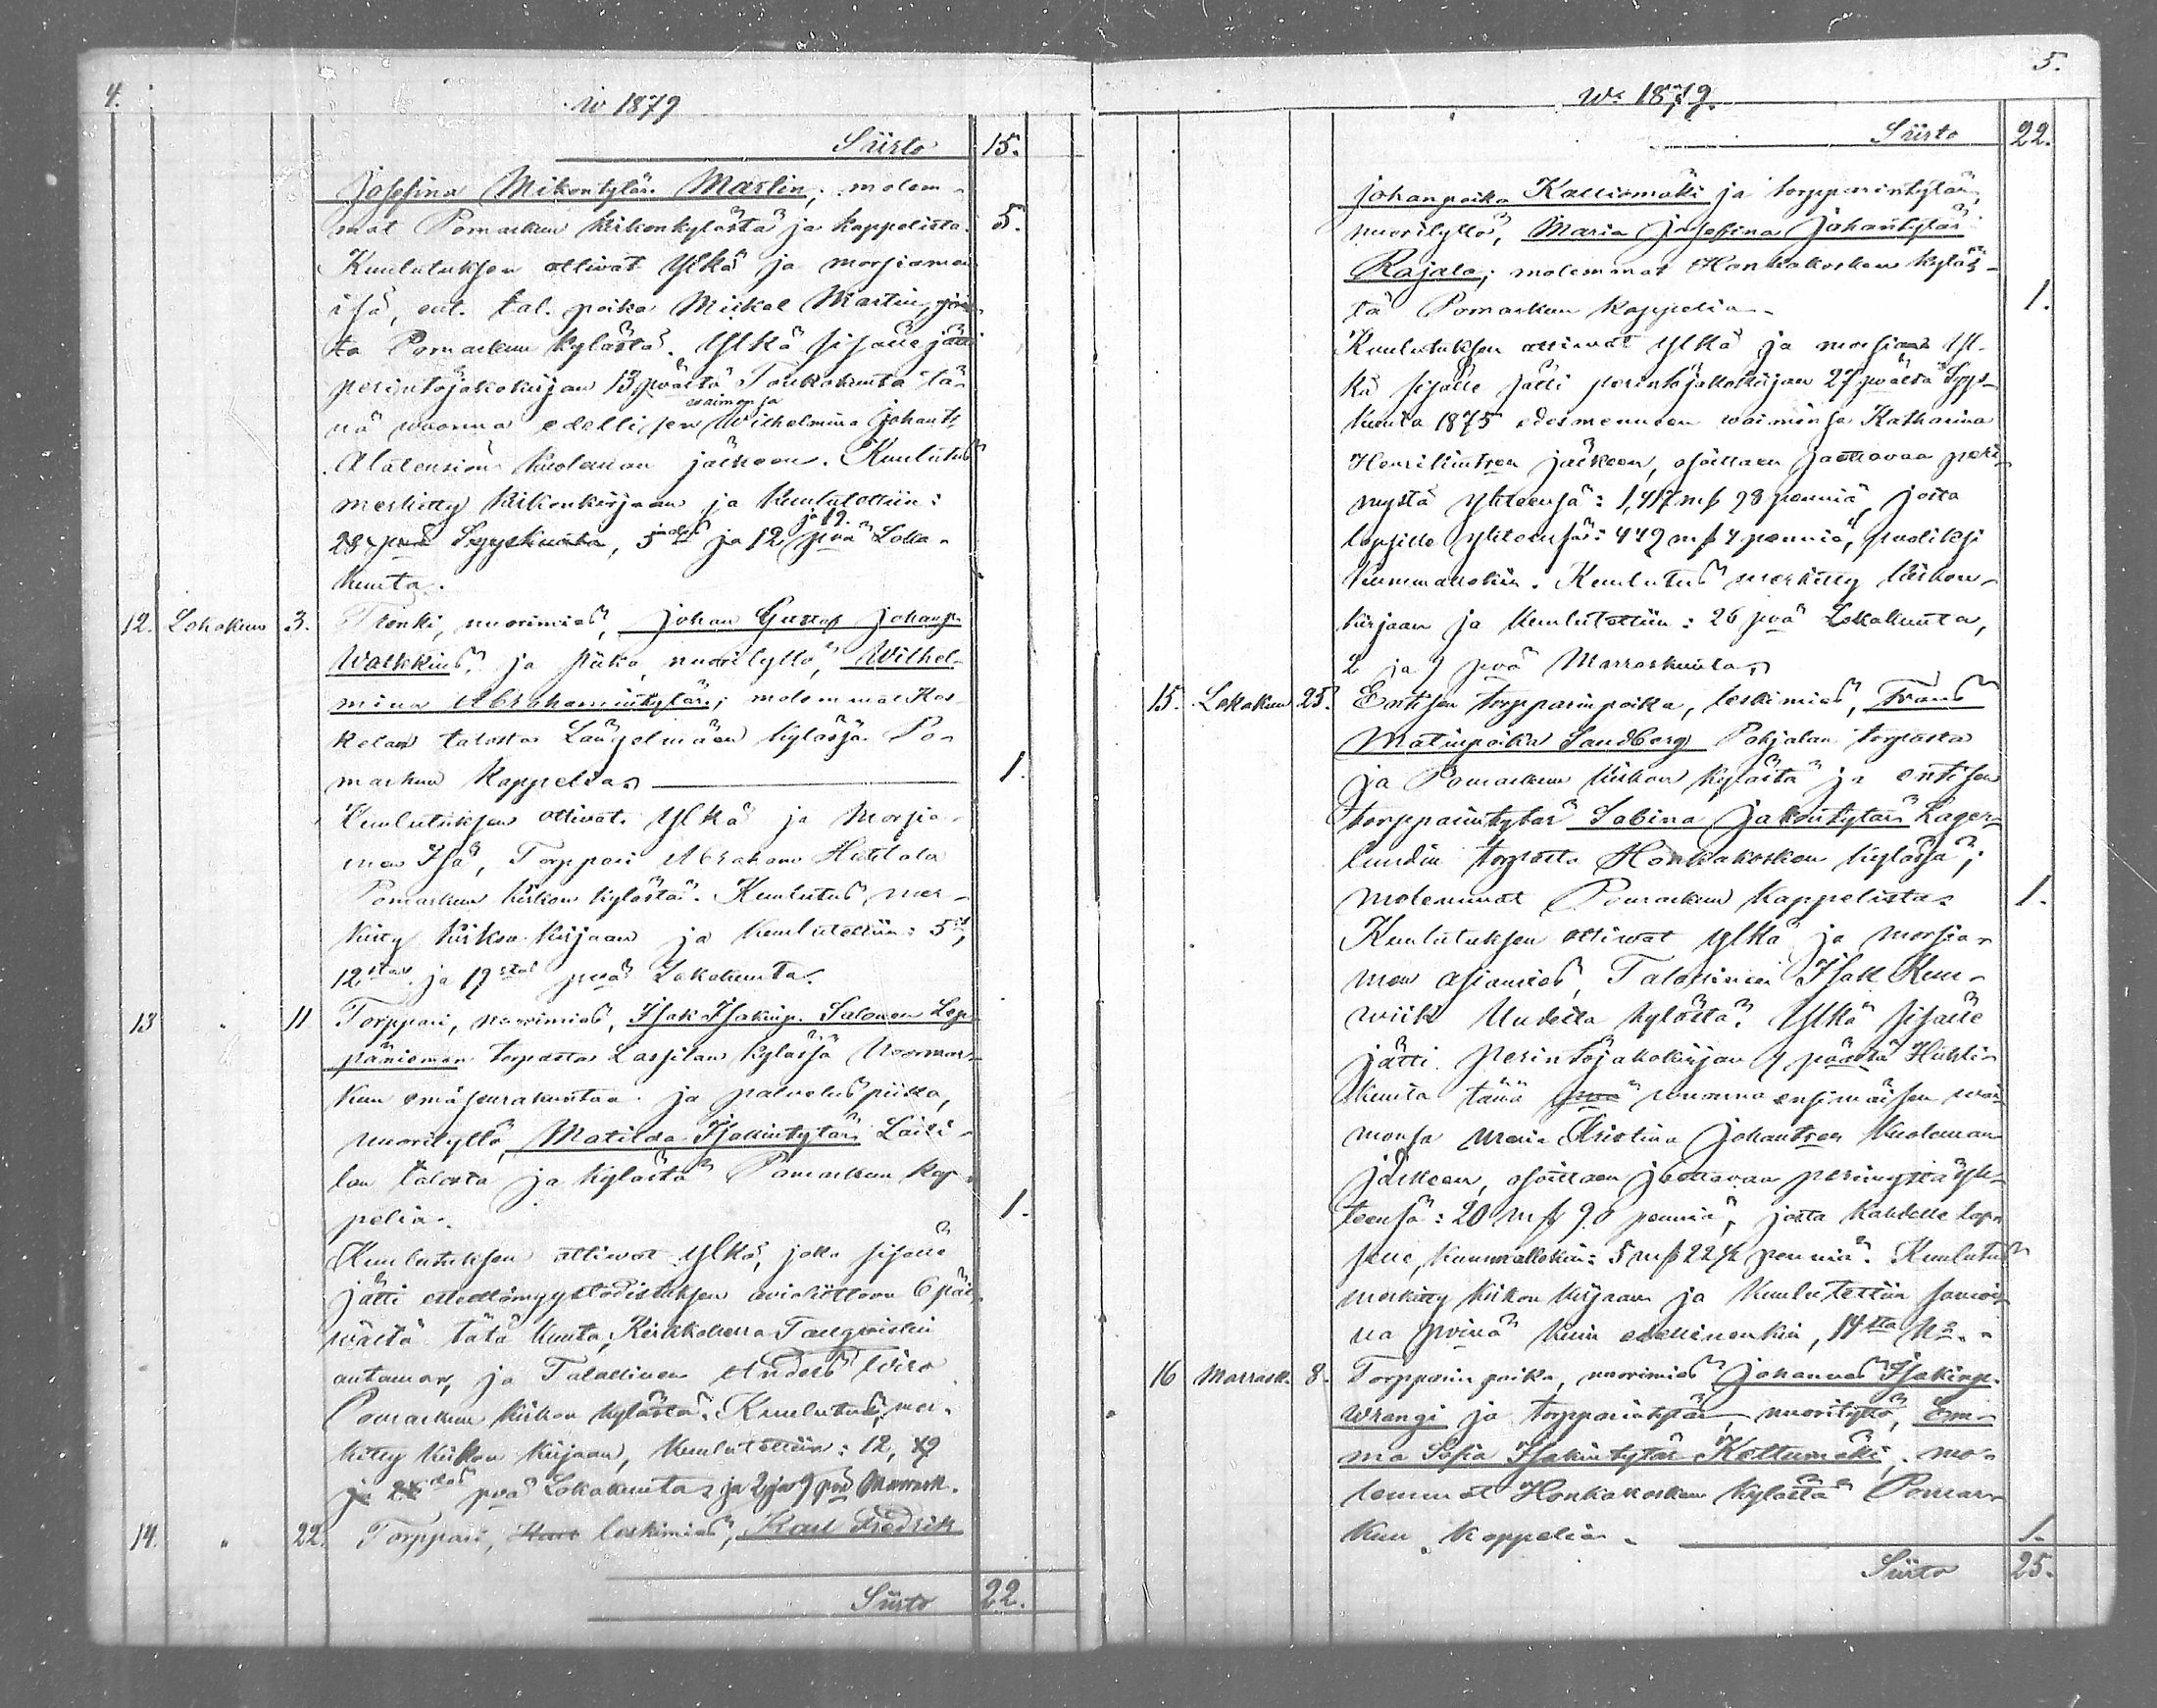 4.
w 1879
Siirto 15.
Josefina Mikontytär Martin; molem-
mat Pomarkun kirkonkylästä ja kappelista. 5.
Kuulutuksen ottivat Ylkä ja morsiamen
isä, ent. tal. poika Mickel Martin,
ta Pomarkun kylästä. Ylkä sisälle jätti
perintöjakokirjan 13 pvältä Toukokuuta tä-
nä vuonna edellisen waimonsa Wilhelmina Johant:
Alatensiön kuoleman jälkeen. Kuulutus
merkitty kirkonkirjaan ja kuulutettiin:
28 pvä Syyskuuta, 5 ja 12 ja 19. pvä Loka-
kuuta.
12. Lokakuu 3. Trenki, nuorimies, Johan Gustaf Johanp.
Walkkius, ja piika, nuorityttö, Wilhel-
mina Abrahamintytär; molemmat Kos-
kelan talosta Längelmäen kylässä Po-
markun kappelia. 1.
Kuulutuksen ottivat Ylkä ja Morsia-
men Isä, Torppari Abraham Huhtala
Pomarkun kirkon kylästä. Kuulutus, mer-
kitty kirkon kirjaan ja kuulutettiin: 5,
12 ja 19 pvä Lokakuuta.
13 " 11 Torppari, nuorimies, Isak Isakinp. Salonen Lep-
päniemen torpasta Lassilan kylässä Noormar-
kun emäseurakuntaa ja palveluspiika,
nuorityttö, Matilda Isakintytär Laisi-
lan talosta ja kylästä Pomarkun kap-
pelia. 1.
Kuulutuksen ottivat Ylkä, joka sisälle
jätti esteettömyystodistuksen avioliittoon 6 päi-
wältä tätä kuuta, Kirkkoherra Tallqwistin
antaman, ja Talollinen Anders Wiro
Pomarkun kirkon kylästä. Kuulutus, mer-
kitty kirkon kirjaan, kuulutettiin: 12, 19
ja 26 pvä Lokakuuta ja 2 ja 9 pvä Marrask.
14. " 22. Torppari, leskimies, Karl Fredrik
Siirto 22.
5.
w. 1879.
Siirto 22.
Johanpoika Kalliomäki ja torpparintytär,
nuorityttö, Maria Josefina Johantytär
Rajala; molemmat Honkakosken kyläs-
tä Pomarkun kappelia. 1.
Kuulutuksen ottivat Ylkä ja Yl-
kä sisälle jätti perintöjakokirjan 27 pvältä Syys-
kuuta 1875 edesmenneen waimonsa Katharina
jälkeen, osoittaen jaettavaa peri-
mystä yhteensä: 1,417 mk 98 penniä, josta
lapsille yhteensä: 442 mk 4 penniä, puoliksi
kummallekin. Kuulutus merkitty kirkon-
kirjaan ja kuulutettiin: 26 pvä Lokakuuta,
2 ja 9 pvä Marraskuuta.
15. Lokakuu 25. Entisen torpparinpoika, leskimies, Frans
Matinpoika Sandberg Pohjalan torpasta
ja Pomarkun kirkon kylästä ja entisen
torpparintytär Sabina Jakontytär Lager-
lundin torpasta Honkakosken kylässä;
molemmat Pomarkun kappelista. 1.
Kuulutuksen ottivat Ylkä ja morsia-
men asiamies, Talollinen Isak Kun-
wiik Uudelta kylästä. Ylkä sisälle
jätti perintöjakokirjan 9 päältä Huhti-
kuuta tänä vuonna ensimäisen wai-
monsa Maria Kristina Johantyär kuoleman
jälkeen, osoittaen jaettavaa perimystä yh-
teensä: 20 mk 90 penniä, josta kahdelle lap-
selle, kummallekin: 5 mk 22½ penniä. Kuulutus
merkitty kirkon kirjaan ja kuulutettiin samoi-
na pvinä kuin edellinenkin, 14 No.
16 Marrask. 8. Torpparin poika, nuorimies Johannes Isakinp.
Wrangi ja torpparintytär, nuorityttö, Em-
ma Sofia Isakintytär Kettumäki, mo-
lemmat Honkakosken kylästä Pomar-
kun kappelia. 1.
Siirto 25.